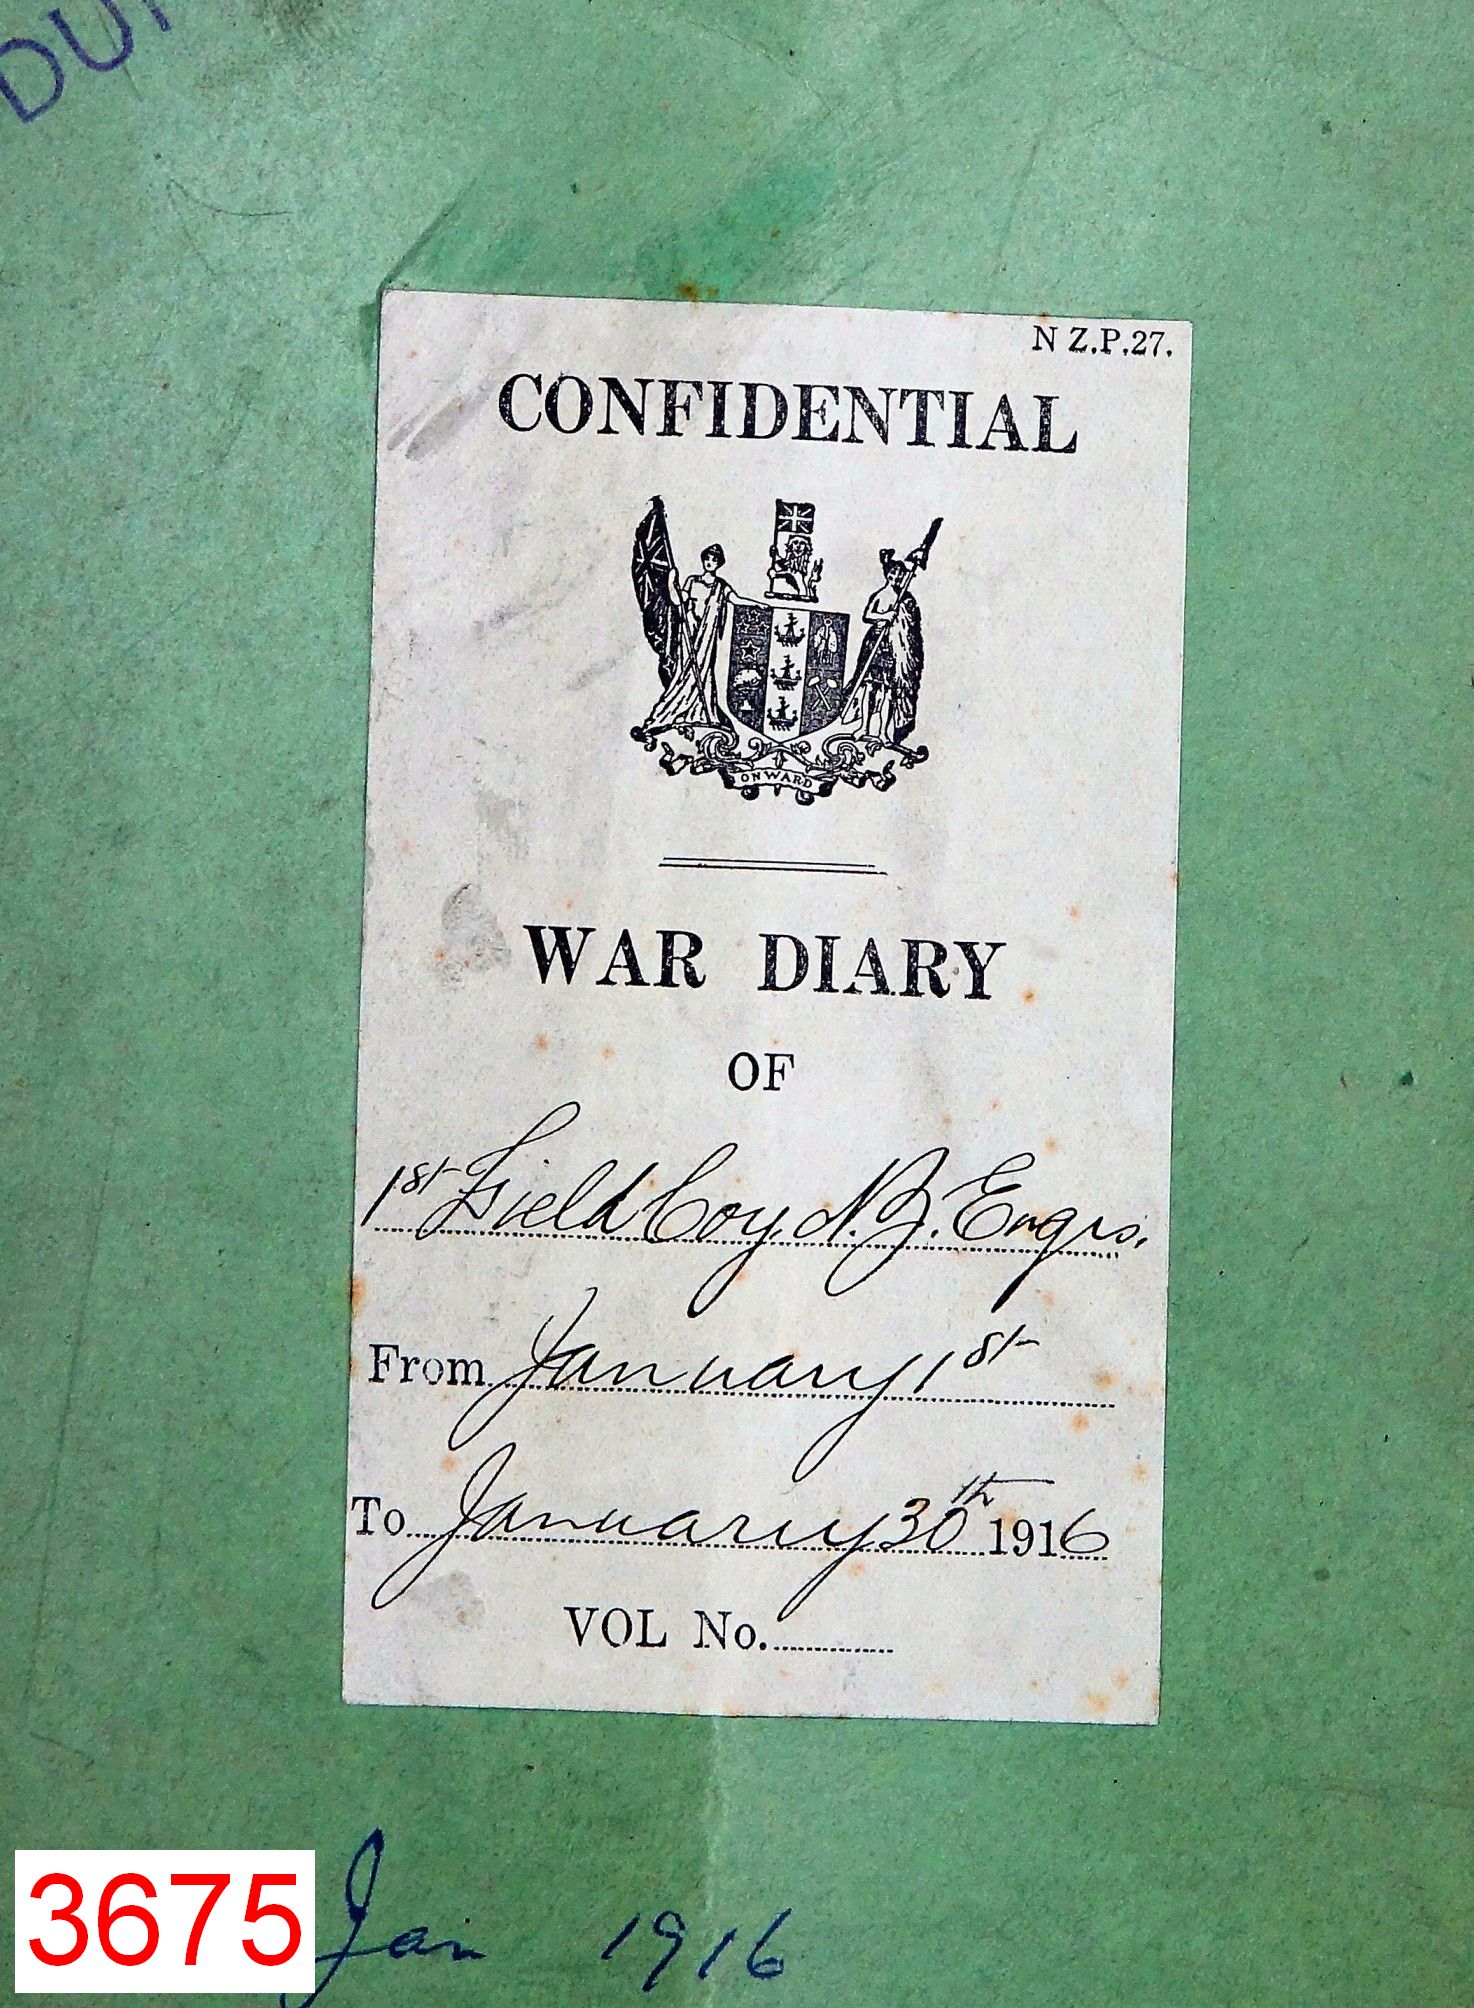 N Z.P.27.
CONFIDENTIAL
ONWARD
WAR DIARY
OF
1st Field Coy. N.Z. Engrs.
From January 1st
To January 30th 1916
VOL No.
3675
Jan 1916